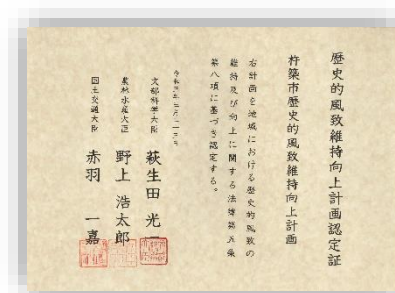 歴史的風致維持向上計画認定証
杵築市歴史的風致維持向上計画
右計画を地域における歴史的風致の
維持及び向上に関する法律第五条
第八項に基づき認定する。
文部科学大臣 萩生田 光一
農林水産大臣 野上 浩太郎
国土交通大臣 赤羽 一嘉